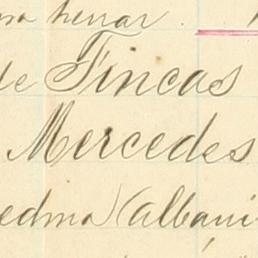 herrar
de Fincas
Mercedes
edma (albañi